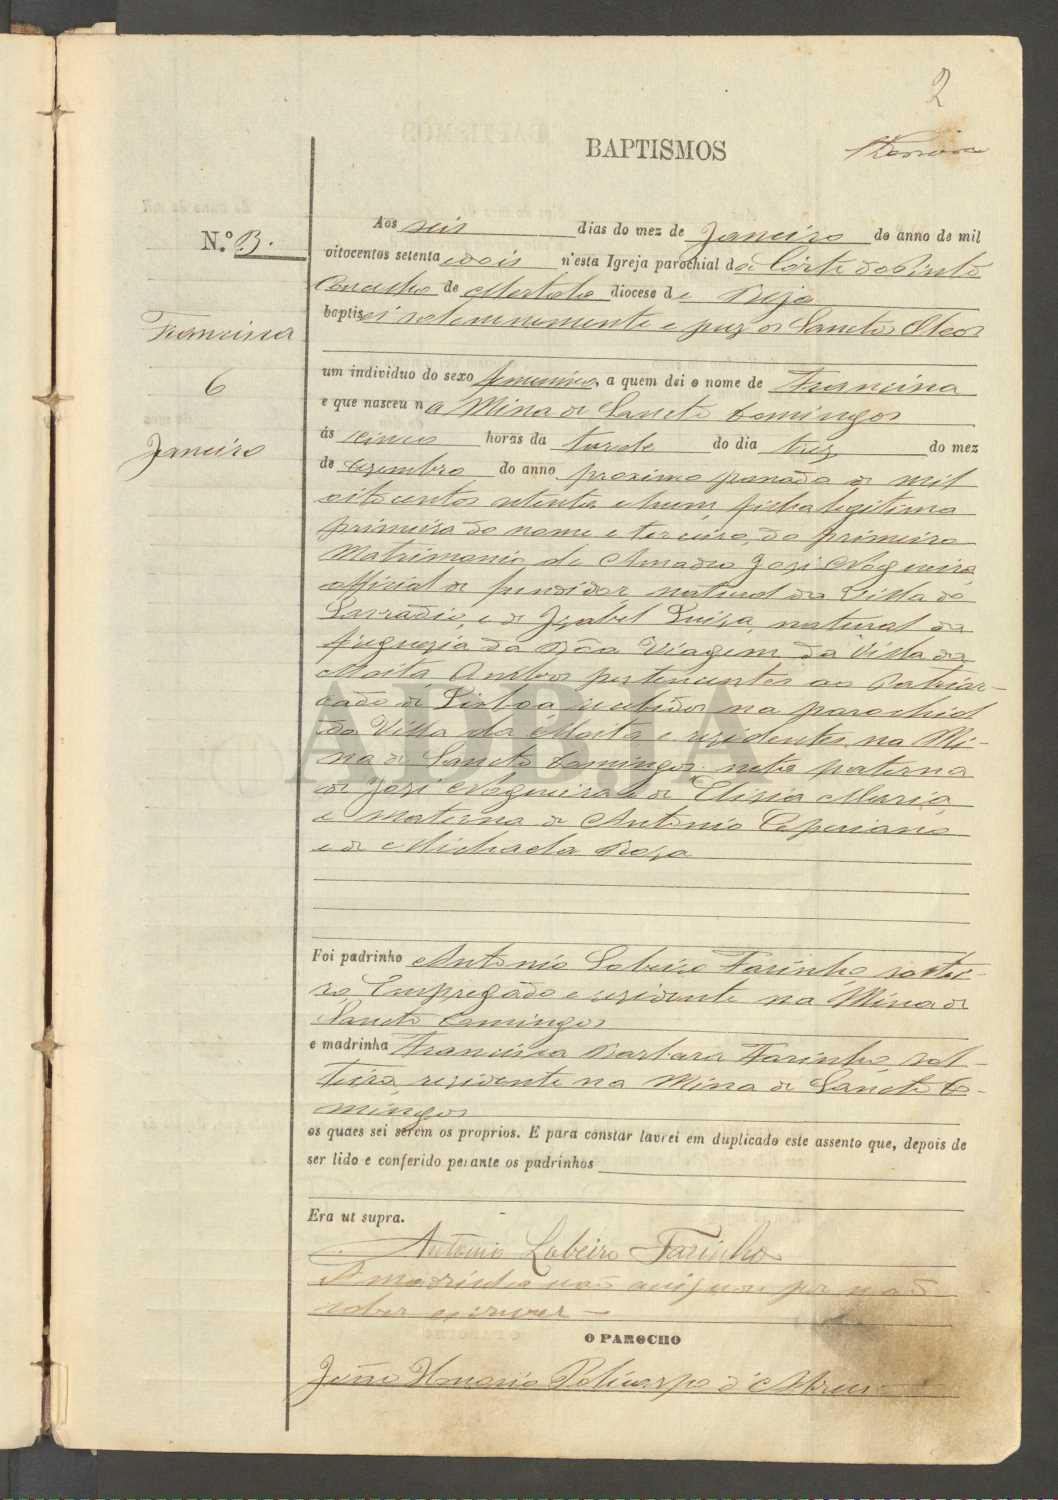 2
BAPTISMOS
N.º 3.
Francisca
6
Janeiro
Aos seis dias do mez de Janeiro do anno de mil
oitocentos setenta e dois n'esta Igreja parochial da Côrte do Pinto
Concelho de Mertola diocese de Beja
baptisei solemnemente e puz os Sanctos Oleos
um individuo do sexo femenino, a quem dei o nome de Francisca
e que nasceu na Mina de Sancto Domingos
ás cinco horas da tarde do dia trez do mez
de Dezembro do anno proximo passado de mil
oitocentos setenta e hum, filha legitima
primeira do nome e terceira do primeiro
Matrimonio de Amadeo José Nogueira
official de fundidor natural da Villa do
Lavradio, e de Izabel Luiza, natural da
freguezia da Bôa Viagem da Villa da
Moita, Ambos pertencentes ao Patriar-
cado de Lisboa recebidos na parochial
da Villa da Moita e rezidentes na Mi-
na de Sancto Domingos: neta paterna
de José Nogueira e de Elizia Maria,
e Materna de Antonio Cypriano
e de Michaela Roza
Foi padrinho Antonio Labeiro Farinho, soltei-
ro, Empregado e rezidente na Mina de
Sancto Domingos
e madrinha Francisca Barbara Farinho sol-
teira, rezidente na Mina de Sancto Do-
mingos
os quaes sei serem os proprios. E para constar lavrei em duplicado este assento que, depois de
ser lido e conferido perante os padrinhos
Era ut supra.
Antonio Labeiro Farinho
A madrinha não assignou por não
saber escrever —
O PAROCHO
João Honorio Policarpo d'Abreu
ADBJA